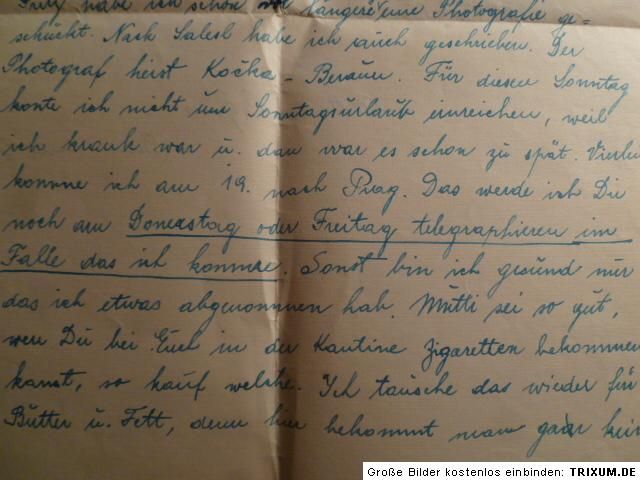 Fritz habe ich schon vor längere eine Photografie ge-
schückt. Nach Salesl habe ich auch geschrieben. Der
Photograf heist Kočka - Beraun. Für diesen Sonntag
konte ich nicht um Sonntagsurlaub einreichen, weil
ich krank war u. dan war es schon zu spät. Vielen
komme ich am 19. nach Prag. Das werde ich Dir
noch am Donerstag oder Freitag telegraphieren im
Falle das ich komme. Sonst bin ich gesund nur
das ich etwas abgenommen hab. Mutti sei so gut,
wen Du bei Euch in der Kantine Zigaretten bekommen
kanst, so kauf welche. Ich tausche das wieder für
Butter u. Fett, denn hier bekommt man gaar kein
Große Bilder kostenlos einbinden: TRIXUM.DE